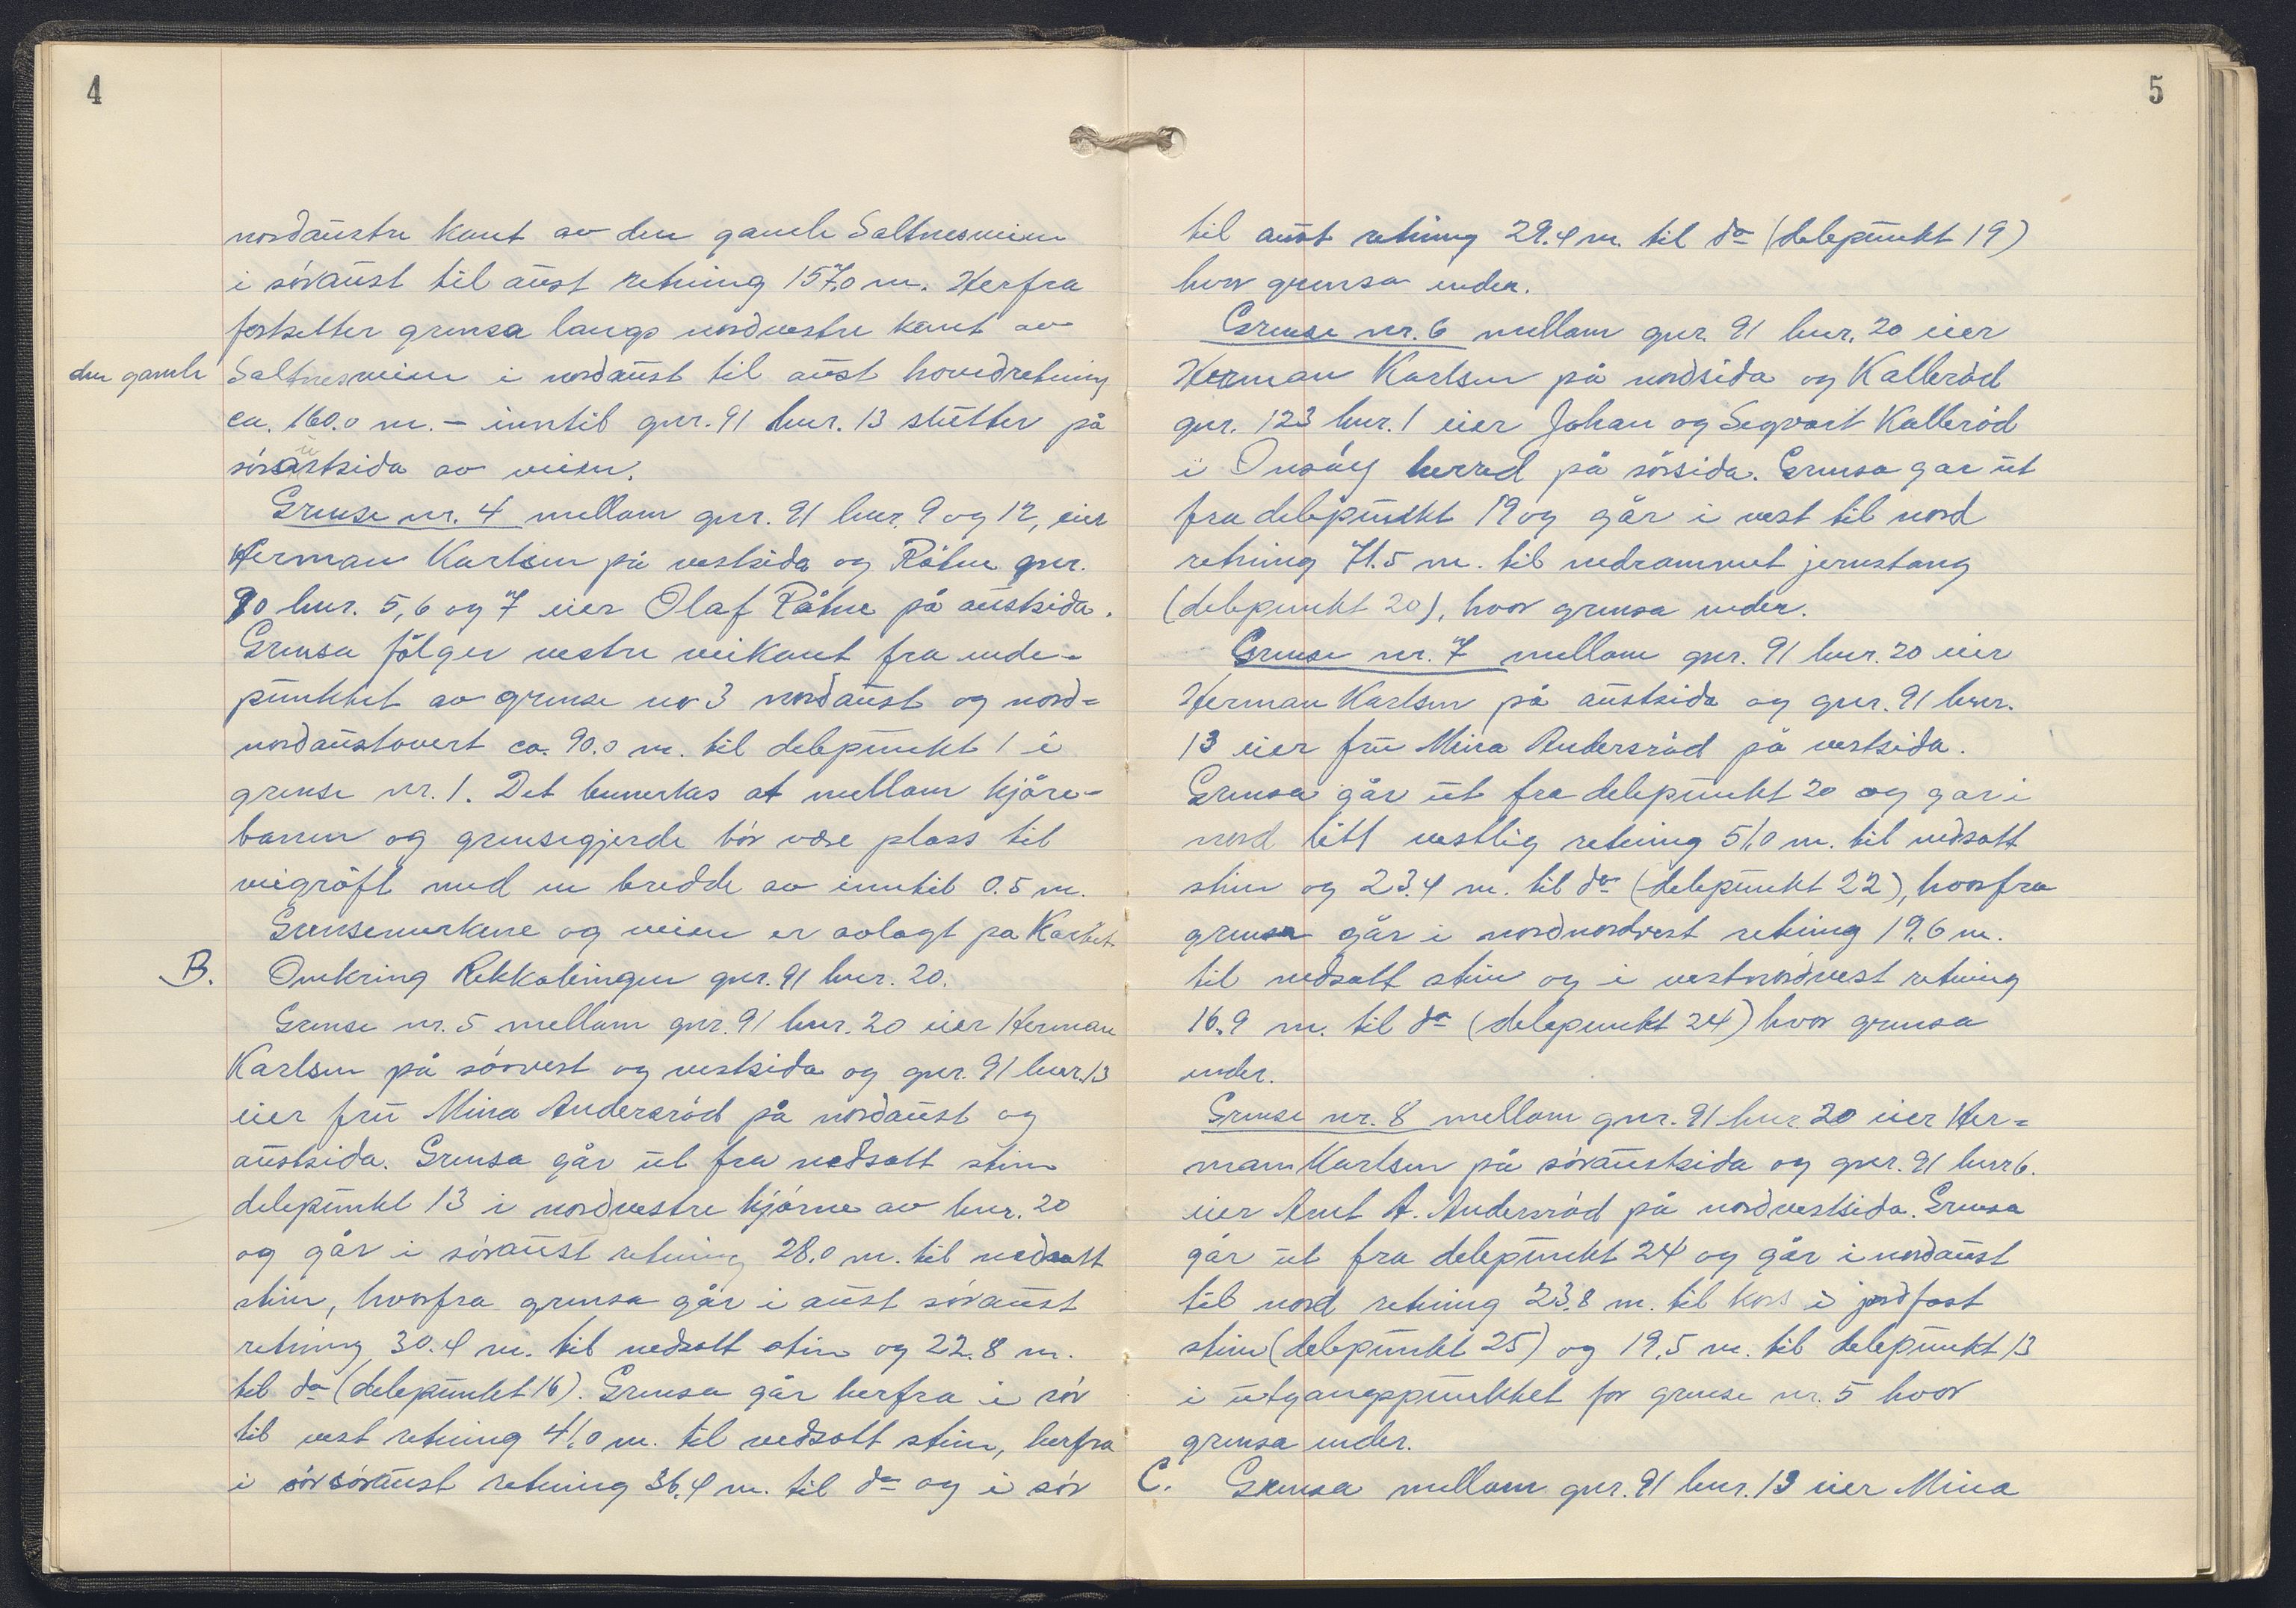 4
nordaustre kant av den gamle Saltnesveien
i söraust til aust retning 157.0 m. Herfra
fortsetter grensa langs nordvestre kant av
den gamle Saltnesveien i nordaust til aust hovedretning
ca. 160.0 m. – inntil gnr. 91 bnr. 13 slutter på
söraustsida av veien.
Grense nr. 4 mellom gnr. 91 bnr. 9 og 12, eier
Herman Karlsen på vestsida og Råhne gnr.
90 bnr. 5, 6 og 7 eier Olaf Råhne på austsida.
Grensa fölger vestre veikant fra ende-
punktet av grense nr 3 nordaust og nord-
nordaustovert ca. 90.0 m. til delepunkt 1 i
grense nr. 1. Det bemerkes at mellom kjöre-
banen og grensegjerde bör være plass til
veigröft med en bredde av inntil 0.5 m.
Grensemerkene og veien er avlagt pa Kartet.
B. Omkring Rekkalingen gnr. 91 bnr. 20.
Grense nr. 5 mellom gnr. 91 bnr. 20 eier Herman
Karlsen på sörvest og vestsida og gnr. 91 bnr. 13
eier fru Mina Andersröd på nordaust og
austsida. Grensa går ut fra nedsatt stein
delepunkt 13 i nordvestre hjörne av bnr. 20
og går i söraust retning 28.0 m. til nedsatt
stein, hvorfra grensa går i aust söraust
retning 30.4 m. til nedsatt stein og 22.8 m.
til do (delepunkt 16). Grensa går herfra i sör
til vest retning 41.0 m. til nedsatt stein, herfra
i sörsöraust retning 36.4 m. til do og i sör
5
til aust retning 29.4 m. til do (delepunkt 19)
hvor grensa ender.
Grense nr. 6 mellom gnr. 91 bnr. 20 eier
Herman Karlsen på nordsida og Kalleröd
gnr. 123 bnr. 1 eier Johan og Segvart Kalleröd
i Onsöy herred på sörsida. Grensa gar ut
fra delepunkt 19 og går i vest til nord
retning 71.5 m. til nedrammet jernstang
(delepunkt 20), hvor grensa ender.
Grense nr. 7 mellom gnr. 91 bnr. 20 eier
Herman Karlsen på austsida og gnr. 91 bnr.
13 eier fru Mina Andersröd på vestsida.
Grensa går ut fra delepunkt 20 og gar i
nord litt vestlig retning 51.0 m. til nedsatt
stein og 23.4 m. til do (delepunkt 22), hvorfra
grensa går i nordnordvest retning 19.6 m.
til nedsatt stein og i vestnordvest retning
16.9 m. til do (delepunkt 24) hvor grensa
ender.
Grense nr. 8 mellom gnr. 91 bnr. 20 eier Her-
man Karlsen på söraustsida og gnr. 91 bnr 6.
eier Arnt A. Andersröd på nordvestsida. Grensa
går ut fra delepunkt 24 og går i nordaust
til nord retning 23.8 m. til kors i jordfast
stein (delepunkt 25) og 19.5 m. til delepunkt 13
i utgangspunktet for grense nr. 5 hvor
grensa ender.
C. Grensa mellom gnr. 91 bnr. 13 eier Mina